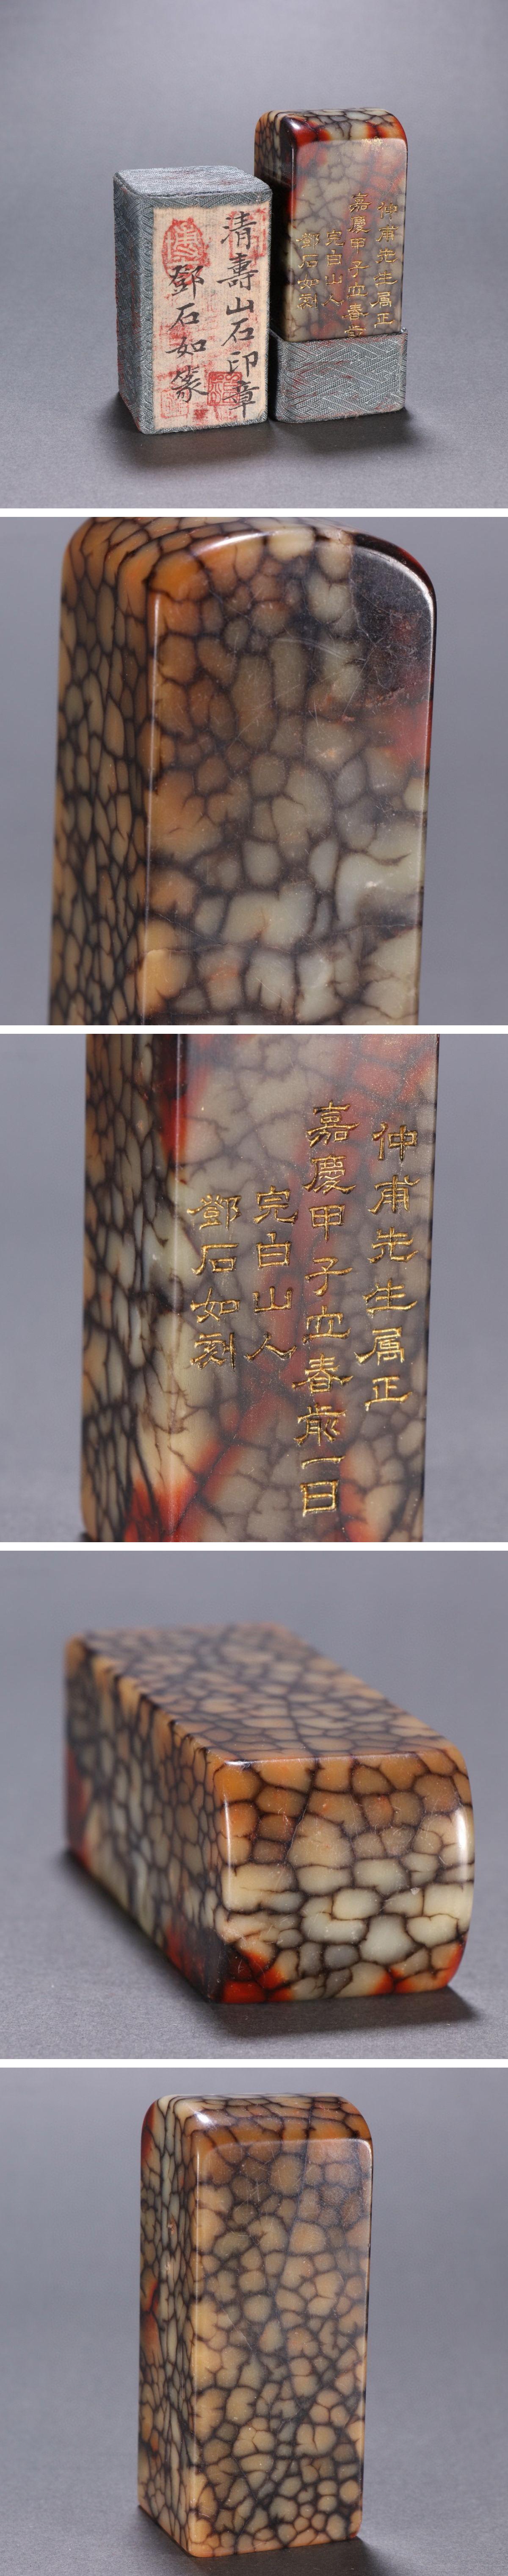 清壽山石印章
鄧石如篆
仲甫先生属正
嘉慶甲子立春前
完白山人
鄧石如刻
仲甫先生属正
嘉慶甲子立春前一日
完白山人
鄧石如刻